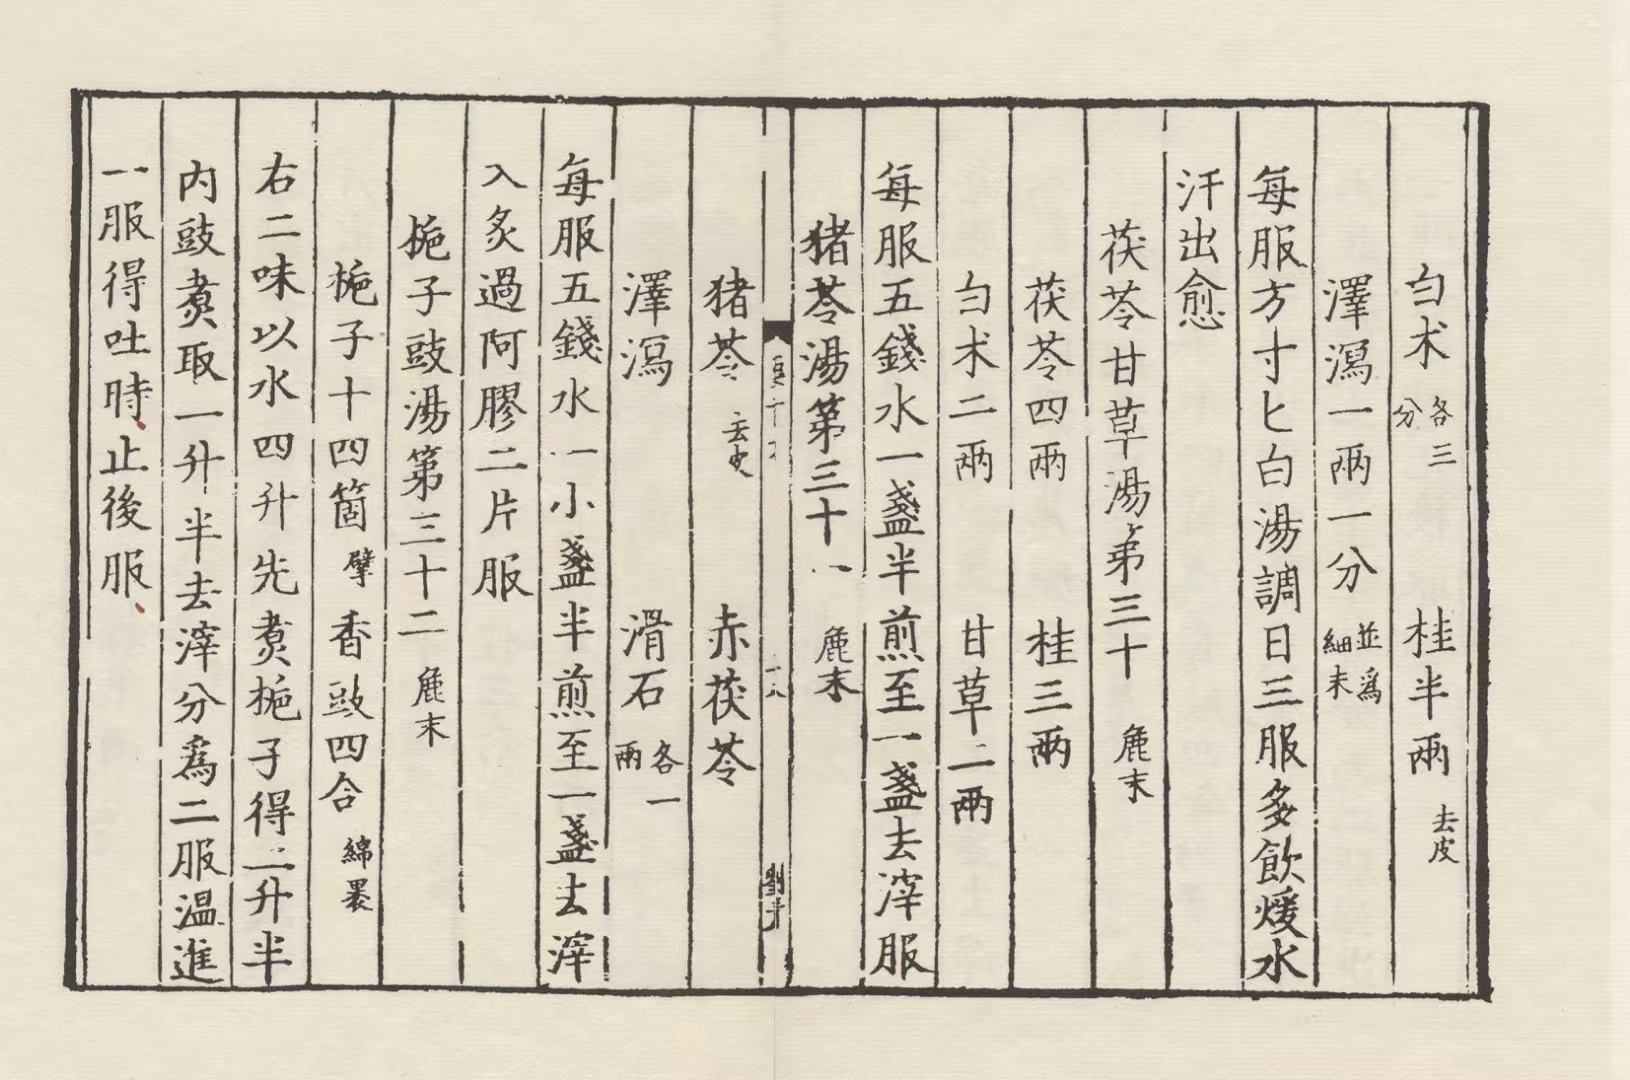 白术各三分 桂半兩去皮
澤瀉一兩一分並爲細末
每服方寸匕白湯調日三服多飲煖水
汗出愈
茯苓甘草湯第三十麁末
茯苓四兩 桂三兩
白术二兩 甘草二兩
每服五錢水一盞半煎至一盞去滓服
猪苓湯第三十一麁末
十八
猪苓去皮 赤茯苓
澤瀉 滑石各一兩
每服五錢水一小盞半煎至一盞去滓
入炙過阿膠二片服
梔子豉湯第三十二麁末
梔子十四箇擘香豉四合綿裹
右二味以水四升先煑梔子得二升半
內豉煑取一升半去滓分爲二服温進
一服得吐時、止後服、